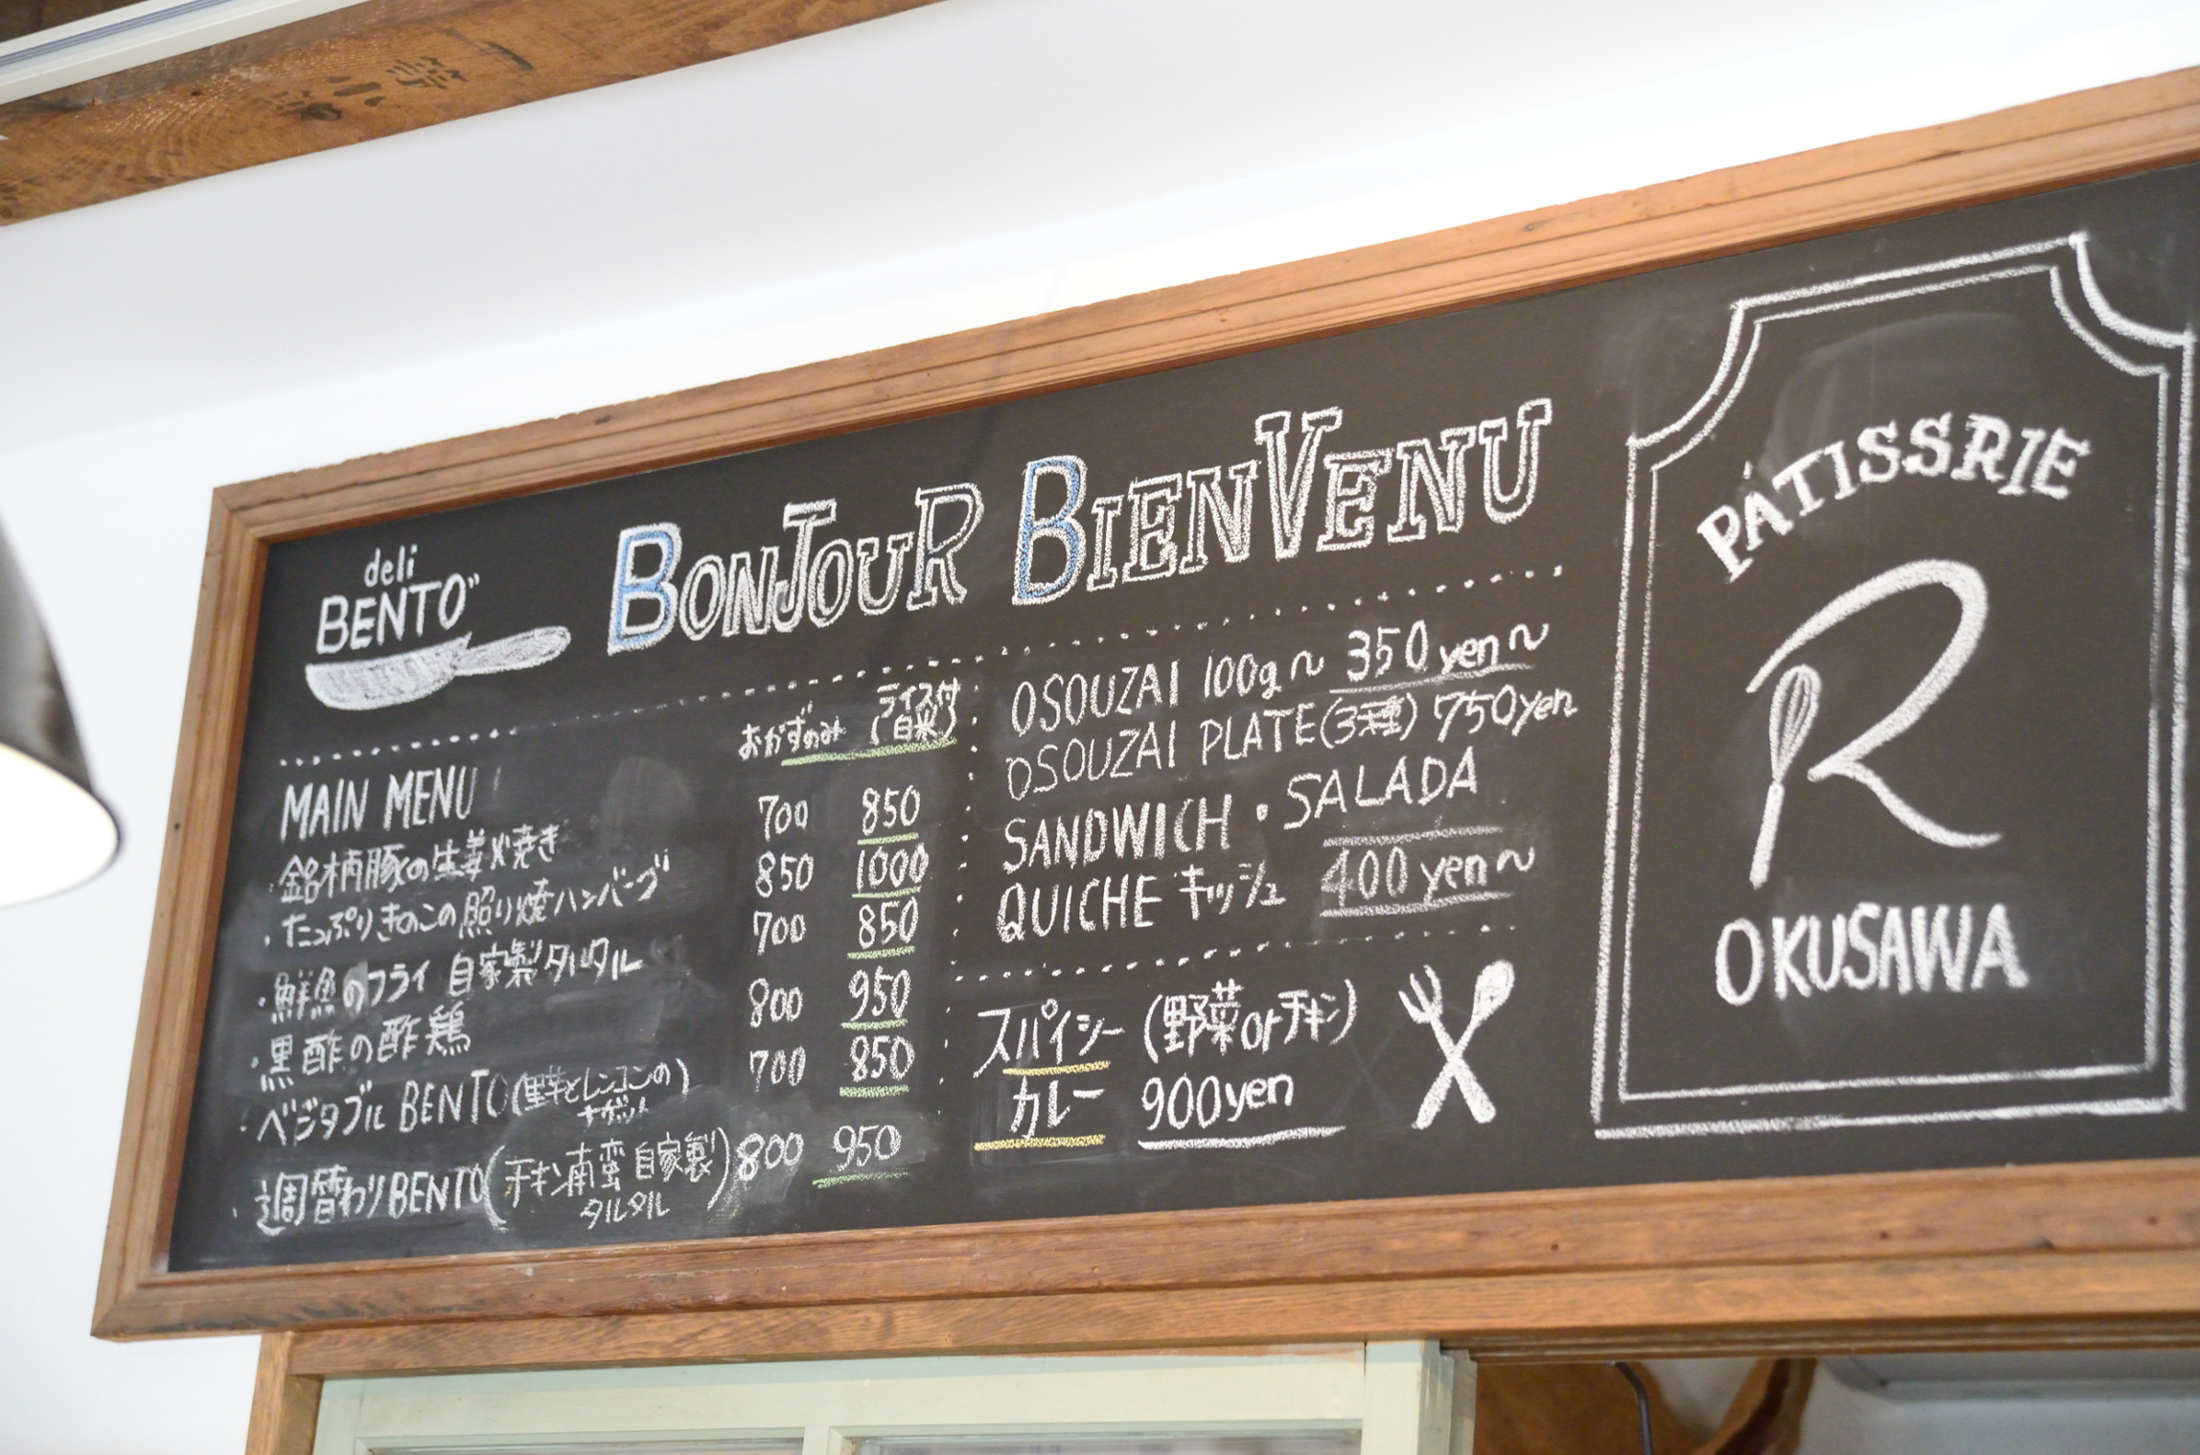 一等小節
deli
BENTO
BONJOUR BIENVENU
おかずのみ
ライス付
(白米)
MAIN MENU
・銘柄豚の生姜焼き 700 850
・たっぷりきのこの照り焼ハンバーグ 850 1000
・鮮魚のフライ 自家製タルタル 700 850
・黒酢の酢鶏 800 950
・ベジタブルBENTO(里芋とレンコンの) 700 850
ナゲット
・週替わりBENTO(チキン南蛮 自家製) 800 950
タルタル
OSOUZAI 100g〜 350yen〜
OSOUZAI PLATE(3種) 750yen
SANDWICH・SALADA
QUICHE キッシュ 400yen〜
スパイシー (野菜orチキン)
カレー 900yen
PÁTISSRIE
R
OKUSAWA